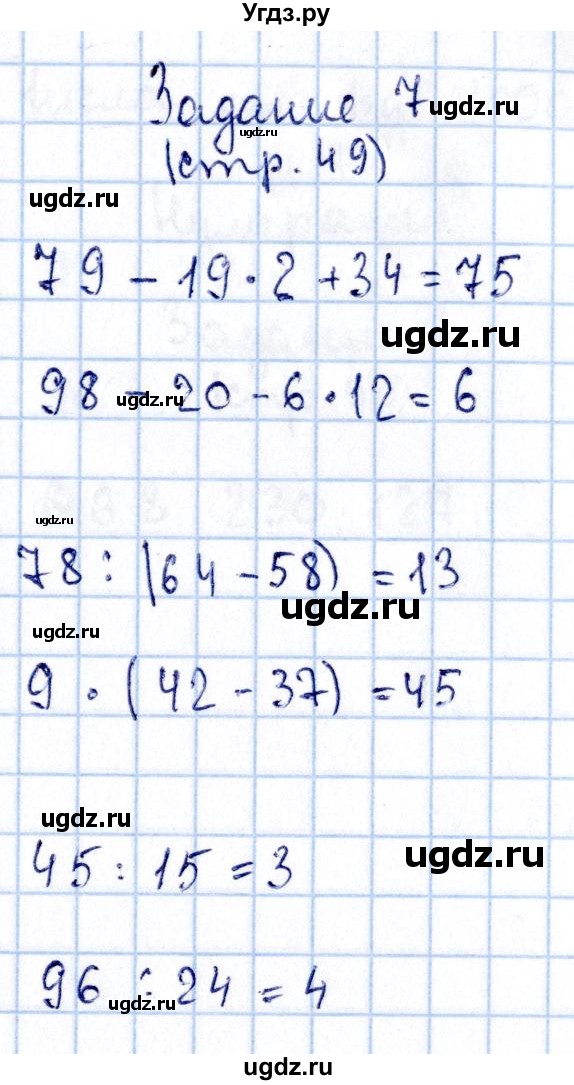 Угдз.ру
Задание 7
ugdz.ru
ugdz.ru
(стр. 49)
ugdz.ru
79 - 19 · 2 + 34 = 75
ugdz.ru
98 - 20 - 6 · 12 = 6
ugdz.ru
ugdz.ru
78 : (64 - 58) = 13
ugdz.ru
ugdz.ru
9 · (42 - 37) = 45
ugdz.ru
ugdz.ru
45 : 15 = 3
96 : 24 = 4
ugdz.ru
Угдз.ру